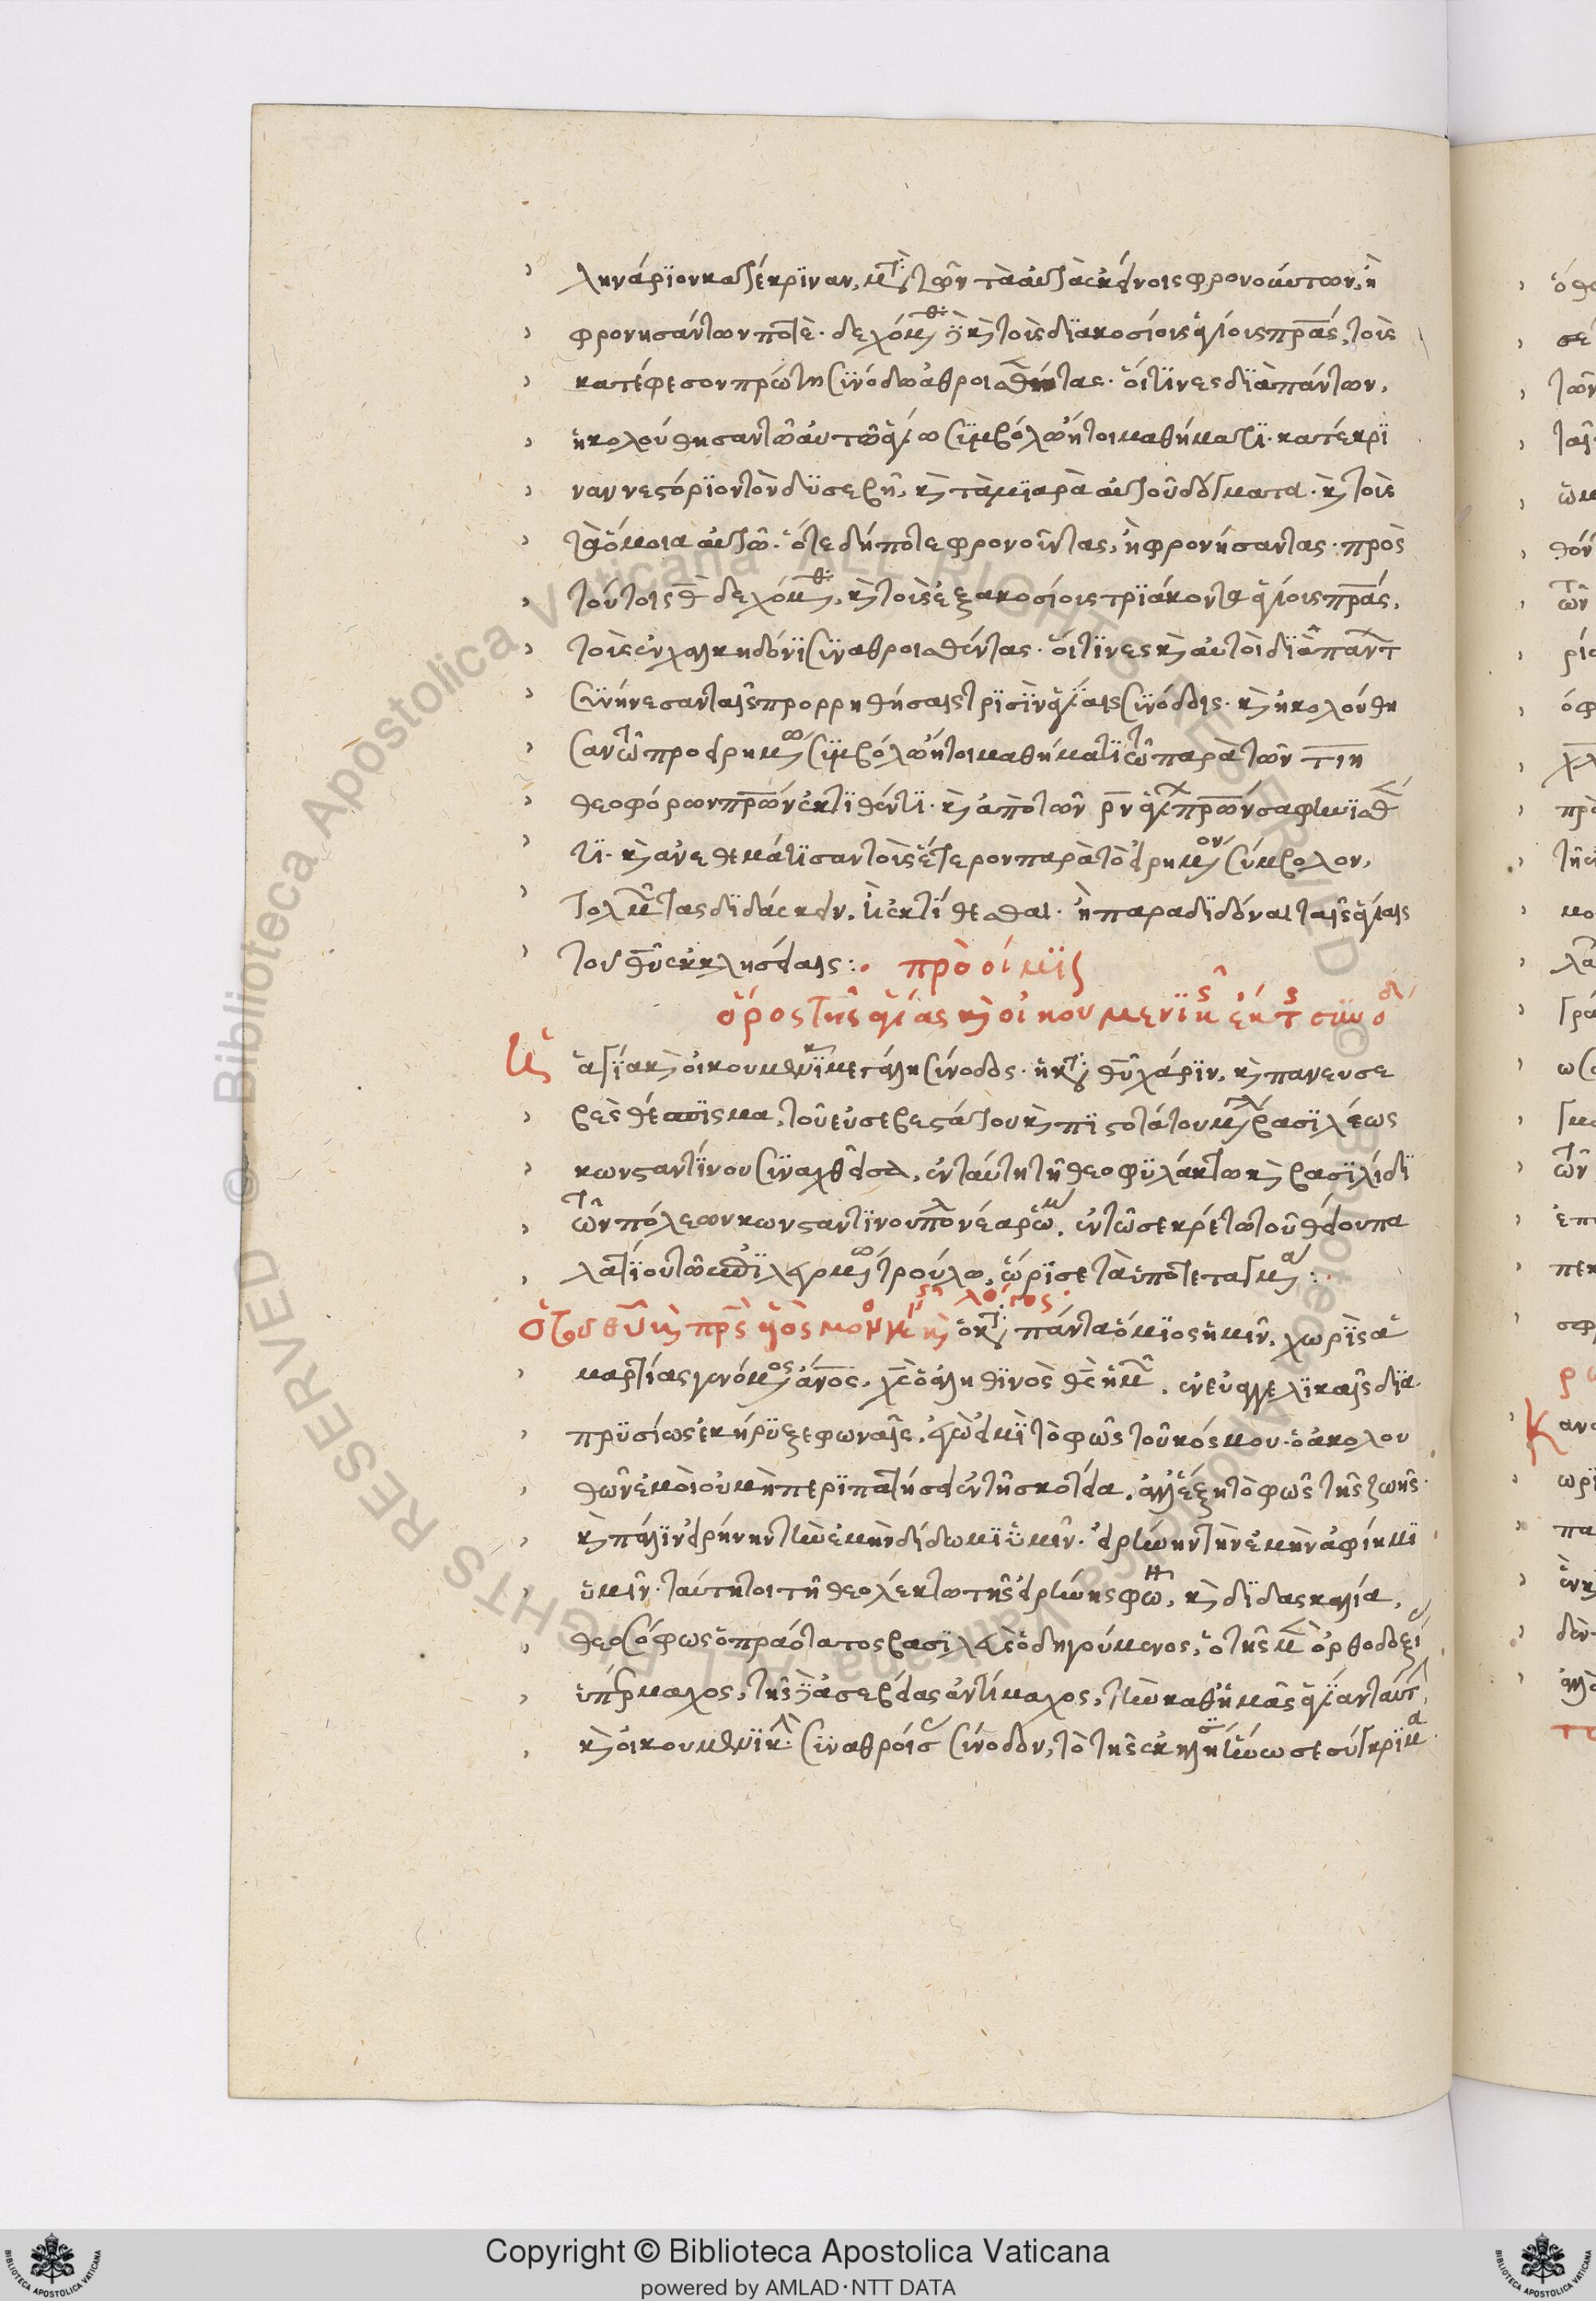 ληνάριον κατέκριναν, μετὰ τῶν τὰ αὐτὰ ἐκείνοις φρονούντων, ἢ
φρονησάντων ποτέ. δεχόμεθα δὲ καὶ τοὺς διακοσίους ἁγίους πρας, τοὺς
κατ' ἔφεσον πρώτη συνόδω ἀθροισθέντας. οἵτινες διὰ πάντων,
ἠκολούθησαν τῶ αὐτῶ ἁγίω συμβόλω ἤτοι μαθήματι. κατέκρι
ναν νεστόριον τὸν δυσεβῆ, καὶ τὰ μιαρὰ αὐτοῦ δόγματα. καὶ τοὺς
τὰ ὅμοια αὐτῶ. ὅτε δήποτε φρονοῦντας, ἢ φρονήσαντας. πρὸς
τούτοις δὲ δεχόμεθα, καὶ τοὺς ἑξακοσίους τριάκοντα ἁγίους πρας,
τοὺς ἐν χαλκηδόνι συναθροισθέντας. οἵτινες καὶ αὐτοὶ διὰ πάντ
συνήνεσαν ταῖς προρρηθήσαις τρισὶν ἁγίαις συνόδοις. καὶ ἠκολούθη
σαν τῶ προειρημένω συμβόλω ἤτοι μαθήματι τῶ παρὰ τῶν τιη
θεοφόρων πρων ἐκτιθέντι. καὶ ἀπὸ τῶν ρν ἁγίων πρων σαφηνισθέν
τι. καὶ ἀνεθεμάτισαν τοὺς ἕτερον παρὰ τὸ εἰρημένον σύμβολον,
τολμῶντας διδάσκειν, ἢ ἐκτίθεσθαι. ἢ παραδιδόναι ταῖς ἁγίαις
τοῦ θυ ἐκκλησίαις:. προοίμι
ὅρος τῆς ἁγίας καὶ οἰκουμενικῆς ἕκτης συνόδ
Ἡ ἁγία καὶ οἰκουμενικὴ μεγάλη σύνοδος. ἡ κατὰ θυ χάριν, καὶ πανευσε
βὲς θέσπισμα, τοῦ εὐσεβεστάτου καὶ πιστοτάτου μεγάλου βασιλέως
κωνσταντίνου συναχθεῖσα, ἐν ταύτη τῆ θεοφυλάκτω καὶ βασιλίδι
τῶν πόλεων κωνσταντίνου πόλ νέα ρώμ. ἐν τῶ σεκρέτω τοῦ θείου πα
λατίου τῶ ἐπιλεγομένω τρούλω, ὥρισε τὰ ὑποτεταγμένα:.
ὁ τοῦ θυ καὶ πρς υἱὸς μονογενὴς καὶ λόγος. ὁ κατὰ πάντα ὅμιος ἡμῖν, χωρὶς ἁ
μαρτίας γενόμενος ἄνος, χς ὁ ἀληθινὸς θς ἡμῶν. ἐν εὐαγγελικαῖς δια
πρυσίως ἐκήρυξε φωναῖς, ἐγὼ εἰμὶ τὸ φῶς τοῦ κόσμου. ὁ ἀκολου
θῶν ἐμοὶ οὐ μὴ περιπατήσει ἐν τῆ σκοτία, ἀλλ' ἕξη τὸ φῶς τῆς ζωῆς.
καὶ πάλιν εἰρήνην τὴν ἐμὴν δίδωμι ὑμῖν. εἰρήνην τὴν ἐμὴν ἀφίημι
ὑμῖν. ταύτη τοι τῆ θεολέκτω τῆς εἰρήνης φω, καὶ διδασκαλία,
θεοσόφως ὁ πραότατος βασιλεὺς ὁδηγούμενος, ὁ τῆς μὲν ὀρθοδοξί
ὑπέρμαχος, τῆς δὲ ἀσεβείας ἀντίμαχος, τὴν καθ' ἡμᾶς ἁγίαν ταύτ
καὶ οἰκουμενικὴν συναθροίσ σύνοδον, τὸ τῆς ἐκκλησίας ἥνωσε σύγκριμα